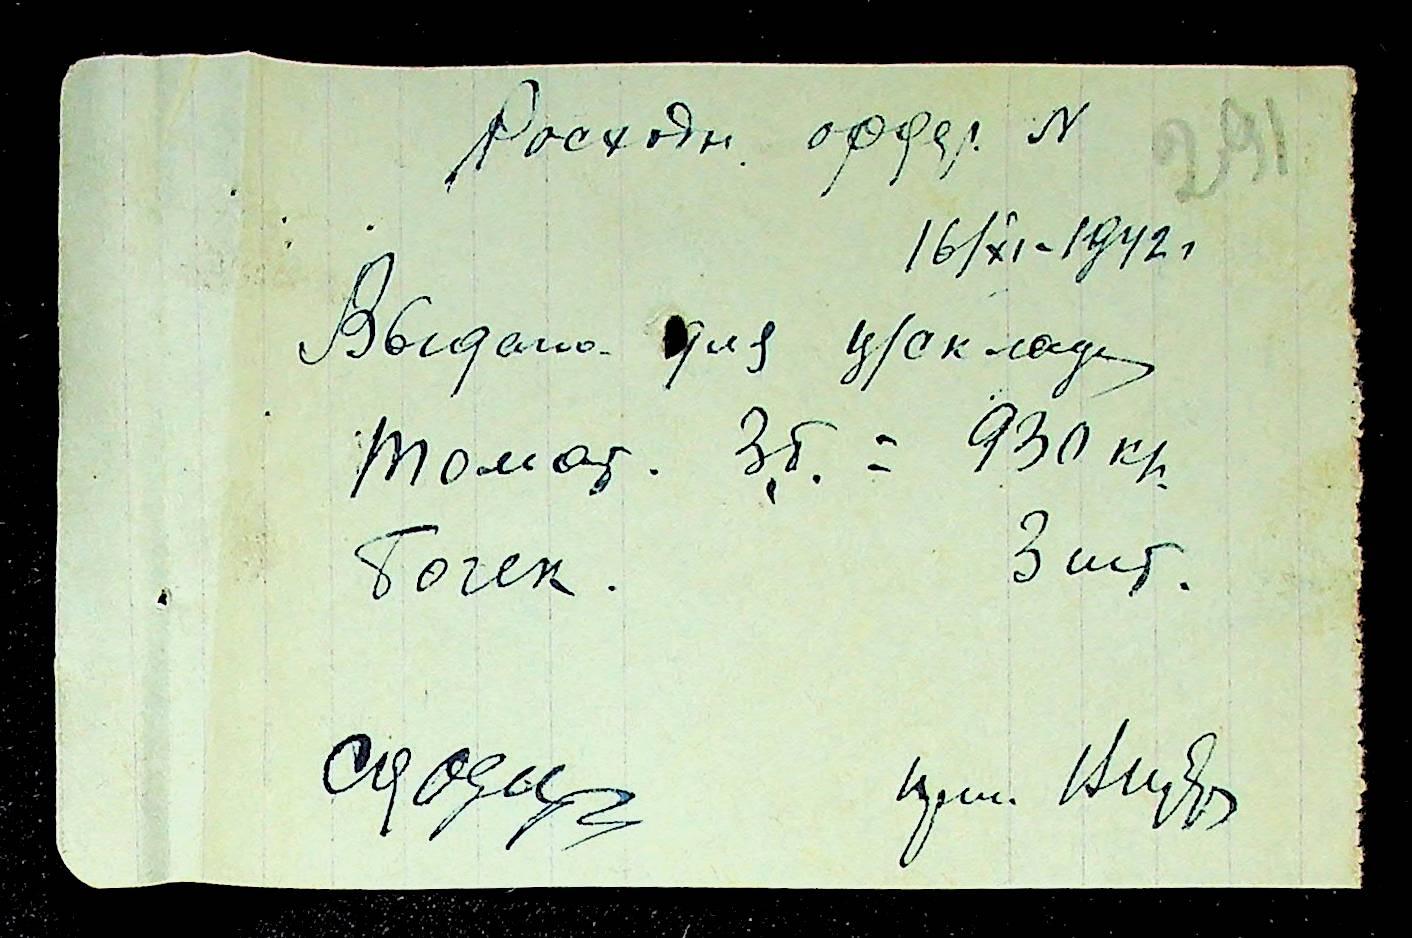 Расходн. ордер. N 291
16/XI-1942г
Выдано для ц/склада
Томат. 3 б. = 930 кг.
Бочек. 3 шт.